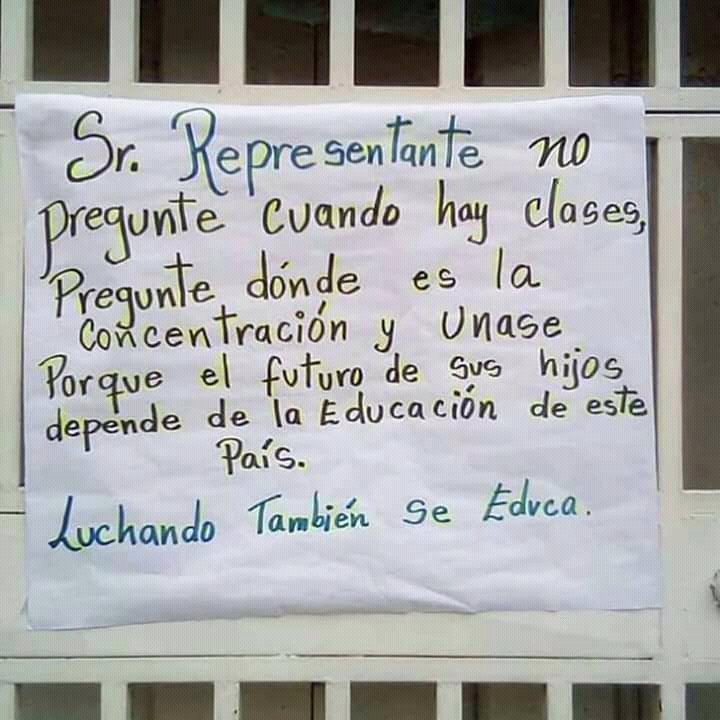 Sr. Representante no
pregunte cuando hay clases,
Pregunte dónde es la
Concentración y Unase
Porque el futuro de sus hijos
depende de la Educación de este
País.
Luchando También se Educa.